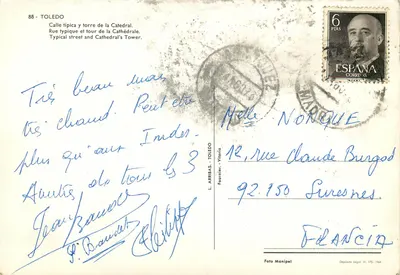 88 - TOLEDO
Calle típica y torre de la Catedral.
Rue typique et tour de la Cathédrale.
Typical street and Cathedral's Tower.
6
PTAS
ESPAÑA
CORREOS
Très beau mais
très chaud. Peut être
plus qu'aux Indes.
Amitiés de tous les 3
Jean
P. Baudet
Philippe
L. ARRIBAS. TOLEDO
Melle NONQUE
12, rue Claude Burgod
92.150 Suresnes
FRANCIA
Foto Manipel